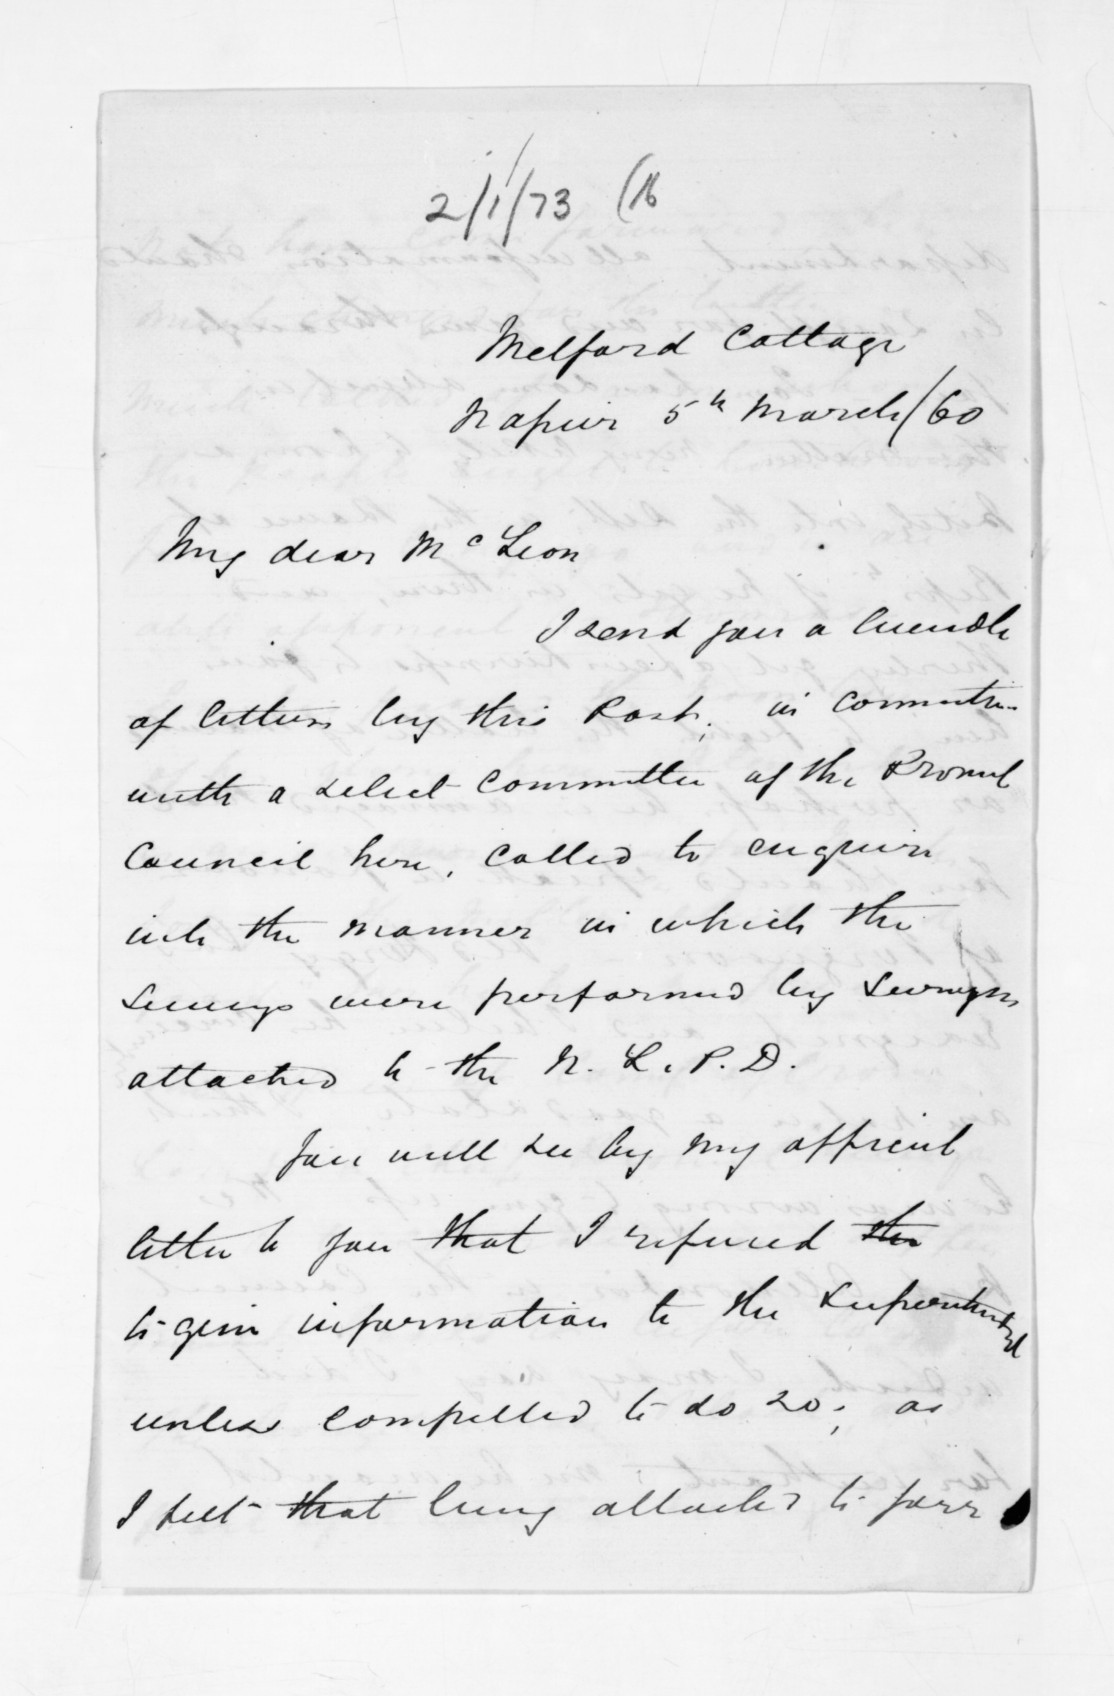 2/1/73 (16
Melford Cottage
Napier 5th March/60
My dear McLean
I send you a bundle
of letters by this Post, in connection
with a select Committee of the Provincl
Council here, called to enquire
into the manner in which the
Surveys were performed by Surveyors
attached to the N. L. P. D.
You will see by my official
letter to you that I refused the
to give information to the Superintendent
unless compelled to do so; as
I felt that being attached to your